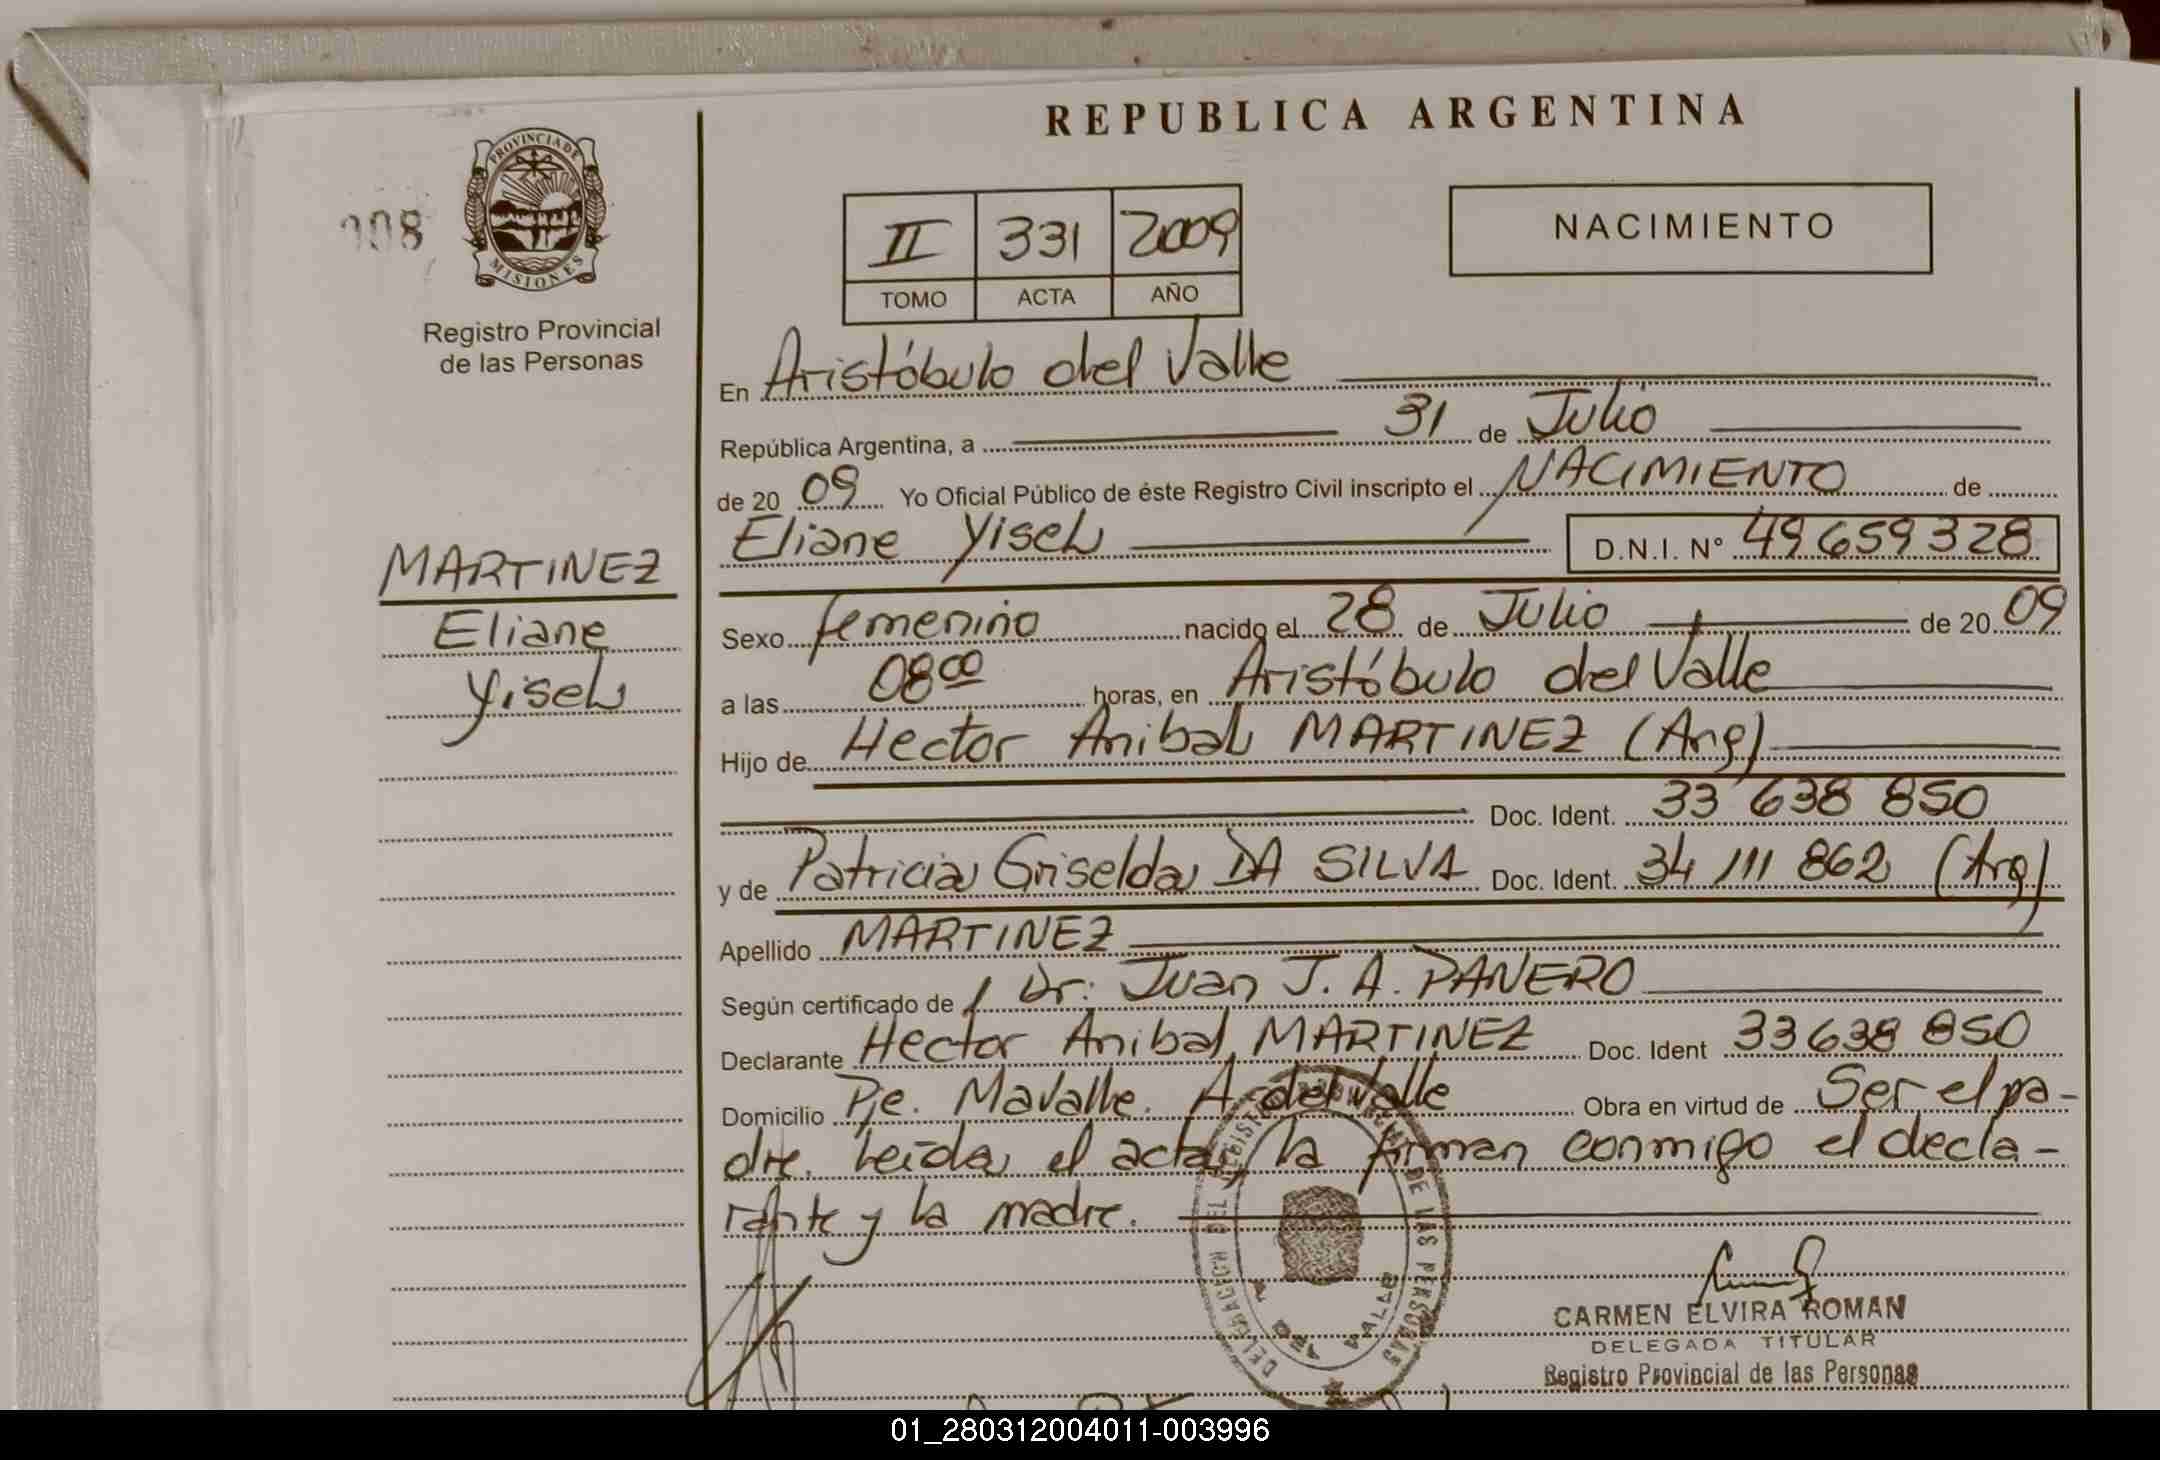 REPUBLICA ARGENTINA
PROVINCIA DE
MISIONES
008
Registro Provincial
de las Personas
II 331 2009
TOMO ACTA AÑO
NACIMIENTO
MARTINEZ
Eliane
Yisel
En Aristóbulo del Valle
República Argentina, a 31 de Julio
de 20 09 Yo Oficial Público de éste Registro Civil inscripto el NACIMIENTO de
Eliane Yisel D.N.I. N° 49 659 328
Sexo femenino nacido el 28 de Julio de 20 09
a las 08 00 horas, en Aristóbulo del Valle
Hijo de Hector Anibal MARTINEZ (Arg)
Doc. Ident. 33 638 850
y de Patricia Griselda DA SILVA Doc. Ident. 34 111 862 (Arg)
Apellido MARTINEZ
Según certificado de Dr: Juan J. A. PANERO
Declarante Hector Anibal MARTINEZ Doc. Ident 33 638 850
Domicilio Pje. Mavalle. A. del Valle Obra en virtud de Ser el pa-
dre. Leída el acta, la firman conmigo el decla-
rante y la madre.
DELEGACION DEL REGISTRO PROVINCIAL DE LAS PERSONAS
A. DEL VALLE
CARMEN ELVIRA ROMAN
DELEGADA TITULAR
Registro Provincial de las Personas
01_280312004011-003996